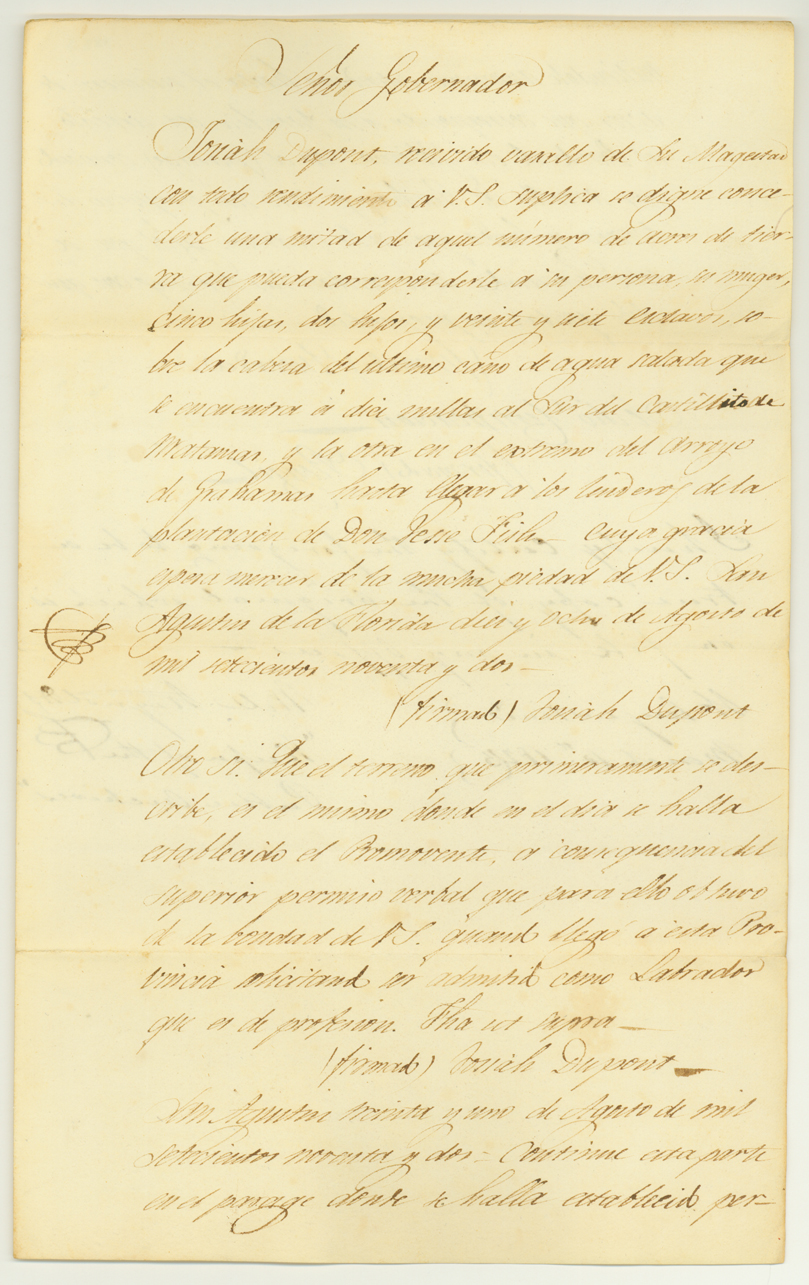 Señor Gobernador
Josiah Dupont, recivido vasallo de Su Magestad
con todo rendimiento á V.S. suplica se digne conce-
derle una mitad de aquel número de acres de tier-
ra que pueda corresponderle á su persona, su muger,
cinco hijas, dos hijos, y veinte y siete esclavos, so-
bre la cabeza del ultimo caño de agua salada que
se encuentra á diez millas al Sur del Castillito de
Matanzas, y la otra en el extremo del Arroyo
de Grahamas hasta llegar a los linderos de la
plantación de Don Jesse Fish_ Cuya gracia
espera merecer de la mucha piedad de V.S. San
Agustin de la Florida diez y ocho de Agosto de
mil setecientos noventa y dos_
(firmado) Josiah Dupont
Otro si. Que el terreno que primeramente se des-
cribe, es el mismo donde en el dia se halla
establecido el Promovente, a consequencia del
superior permiso verbal que para ello obtuvo
de la bondad de V.S. quando llegó á esta Pro-
vincia solicitando ser admitido como Labrador
que es de profesion. Fha ut supra_
(firmado) Josiah Dupont_
San Agustin treinta y uno de Agosto de mil
setecientos noventa y dos= Continue esta parte
en el parage donde se halla establecido, per-